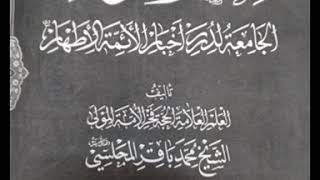 الجامعة لدرر أخبار الأئمة الأطهار
تأليف
العلم العلامة الحجة فخر الأمة المولى
الشيخ محمد باقر المجلسي